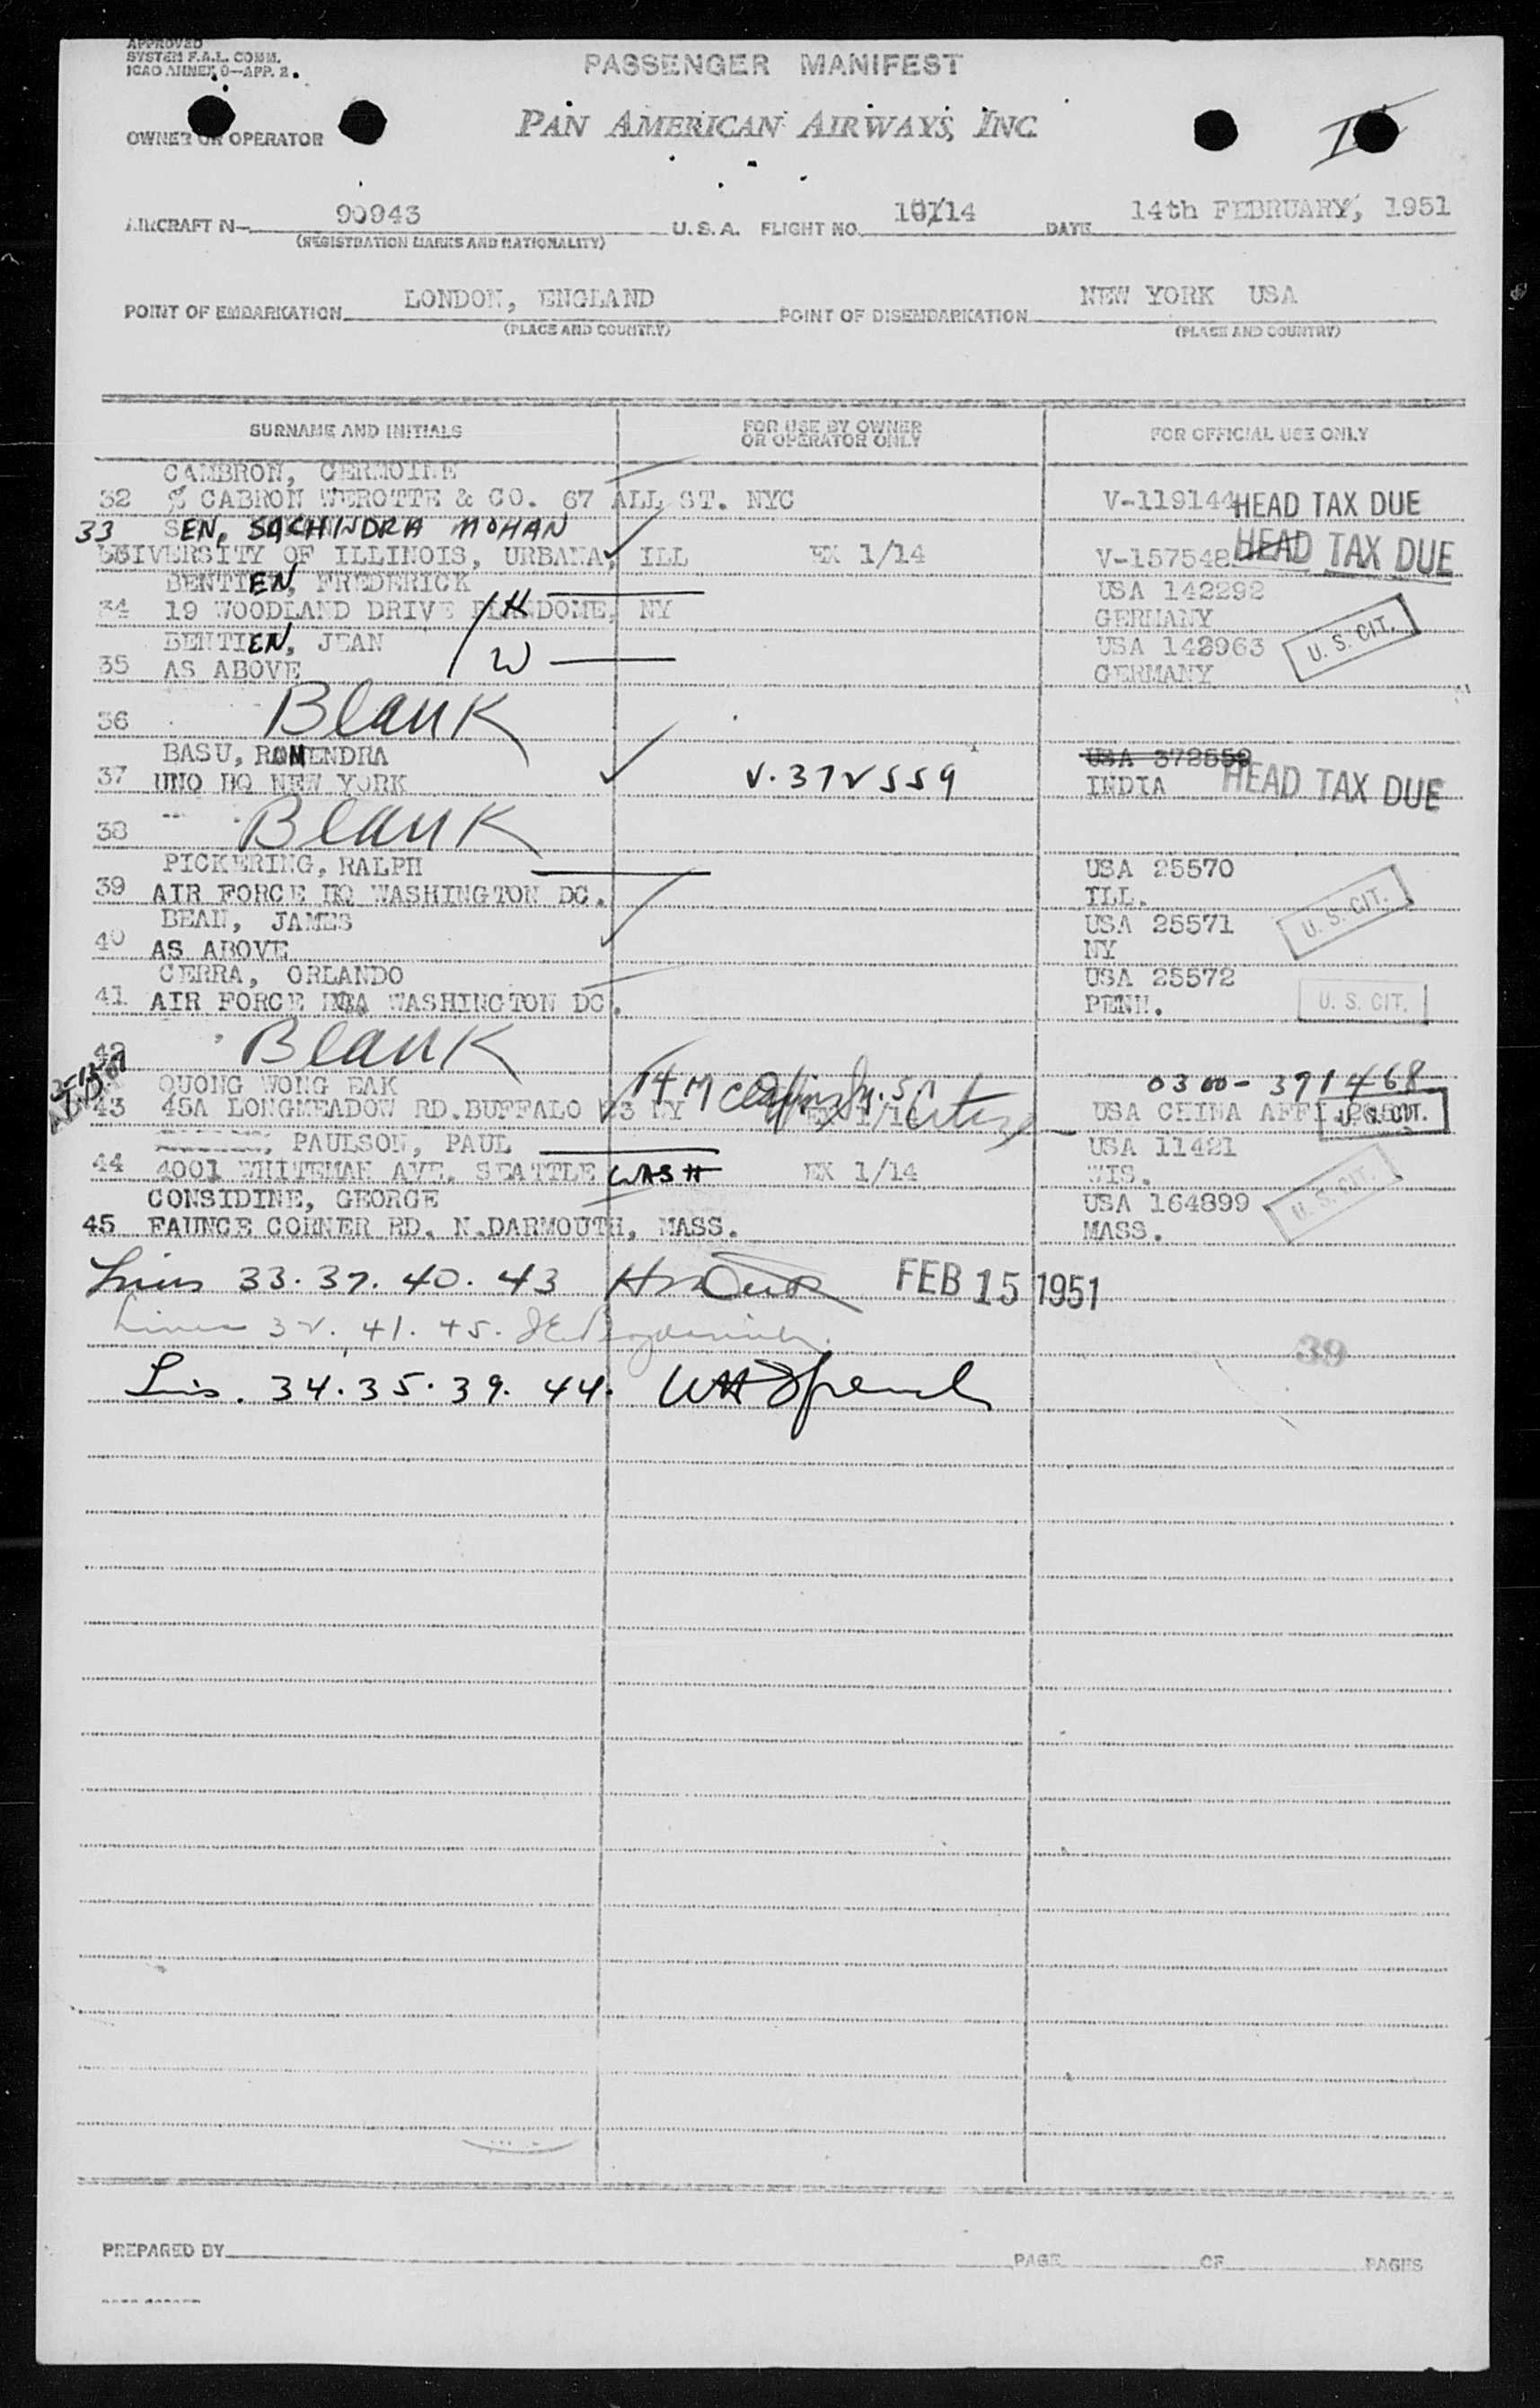 APPROVED
SYSTEM F.A.L. COMM.
ICAO ANNEX 9—APP. 2.
PASSENGER MANIFEST
OWNER OR OPERATOR
PAN AMERICAN AIRWAYS, INC.
AIRCRAFT N— 90943 U.S.A. FLIGHT NO. 101/14 DATE 14th FEBRUARY, 1951
(REGISTRATION MARKS AND NATIONALITY)
POINT OF EMBARKATION LONDON, ENGLAND POINT OF DISEMBARKATION NEW YORK USA
(PLACE AND COUNTRY) (PLACE AND COUNTRY)
SURNAME AND INITIALS FOR USE BY OWNER OR OPERATOR ONLY FOR OFFICIAL USE ONLY
CAMBRON, GERMOINE
32 % CABRON WEROTTE & CO. 67 ALL ST. NYC V-119144 HEAD TAX DUE
33 SEN, SACHINDRA MOHAN
UNIVERSITY OF ILLINOIS, URBANA, ILL EX 1/14 V-157548 HEAD TAX DUE
BENTIEN, FREDERICK USA 142292
34 19 WOODLAND DRIVE PLANDOME, NY H GERMANY
BENTIEN, JEAN USA 142963 U. S. CIT.
35 AS ABOVE W GERMANY
36 Blank
BASU, ROMENDRA USA 372559
37 UNO HQ NEW YORK V.372559 INDIA HEAD TAX DUE
38 Blank
PICKERING, RALPH USA 25570
39 AIR FORCE HQ WASHINGTON DC. ILL.
BEAN, JAMES USA 25571 U. S. CIT.
40 AS ABOVE NY
CERRA, ORLANDO USA 25572
41 AIR FORCE WASHINGTON DC. PENN. U. S. CIT.
42 Blank
QUONG WONG EAK 0300-391468
43 45A LONGMEADOW RD. BUFFALO 23 NY EX 1/14 USA CHINA AFFI U. S. CIT.
PAULSON, PAUL USA 11421
44 4001 WHITEMAN AVE. SEATTLE WASH EX 1/14 WIS.
CONSIDINE, GEORGE USA 164899 U. S. CIT.
45 FAUNCE CORNER RD. N.DARMOUTH, MASS. MASS.
Lines 33. 37. 40. 43 FEB 15 1951
Lines 32. 41. 45.
39
Lis. 34. 35. 39. 44.
PREPARED BY PAGE OF PAGES